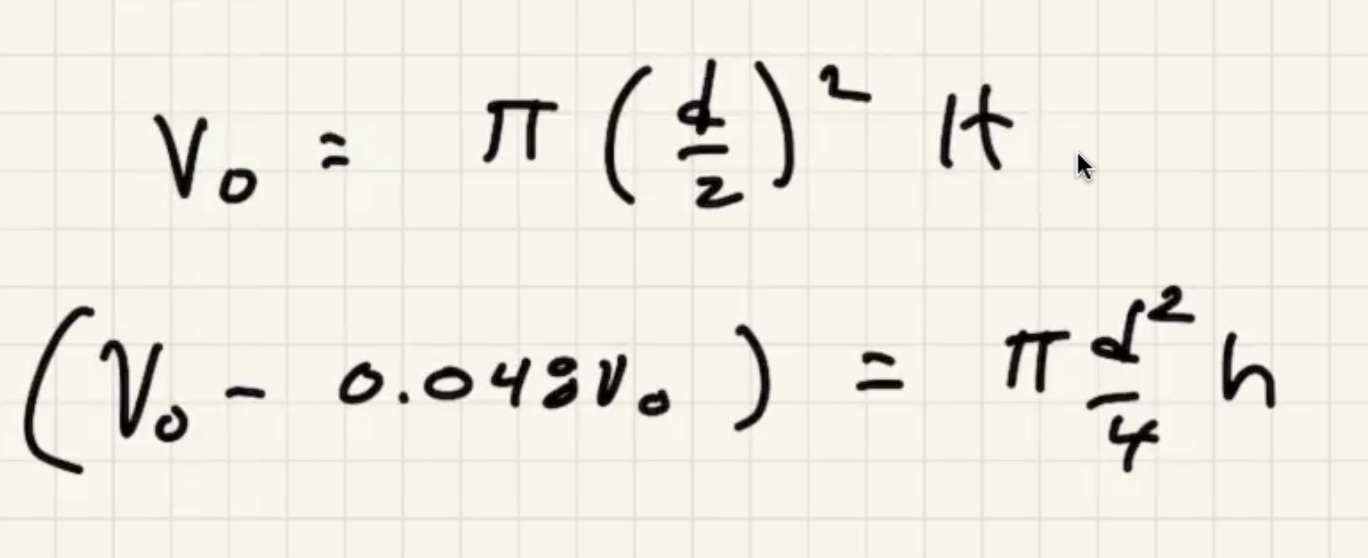 V₀ = π (d/2)² H
(V₀ - 0.048V₀) = π d²/4 h